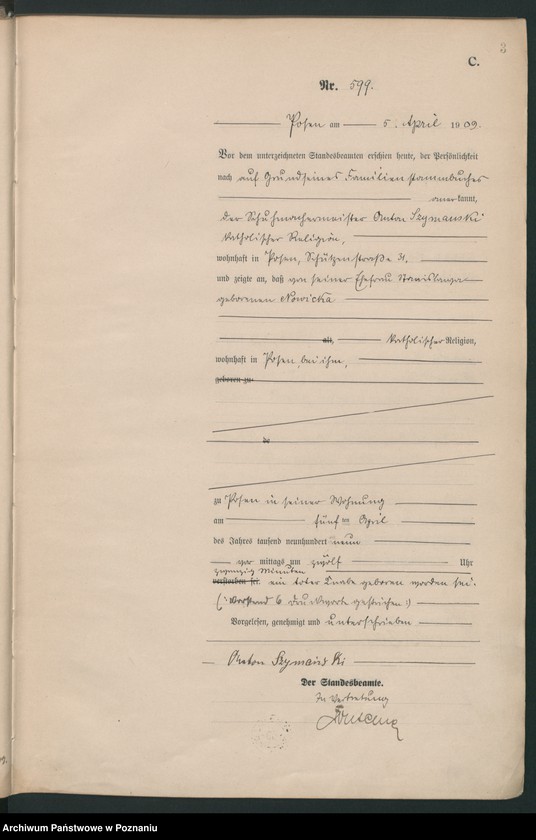 3
C.
Nr. 599.
Posen am 5. April 1909.
Vor dem unterzeichneten Standesbeamten erschien heute, der Persönlichkeit
nach auf Grund seines Familienstammbuches
anerkannt,
der Schuhmachermeister Anton Szymanski
katholischer Religion,
wohnhaft in Posen, Schützenstraße 31.
und zeigte an, daß von seiner Ehefrau Stanislawa
geborenen Nowicka
alt, katholischer Religion,
wohnhaft in Posen, bei ihm,
geboren zu
de
zu Posen in seiner Wohnung
am fünften April
des Jahres tausend neunhundert neun
vormittags um zwölf Uhr
zwanzig Minuten
verstorben sei. ein toter Knabe geboren worden sei.
(: Vorstehend 6 Druckworte gestrichen :)
Vorgelesen, genehmigt und unterschrieben
Anton Szymański
Der Standesbeamte.
In Vertretung
Archiwum Państwowe w Poznaniu